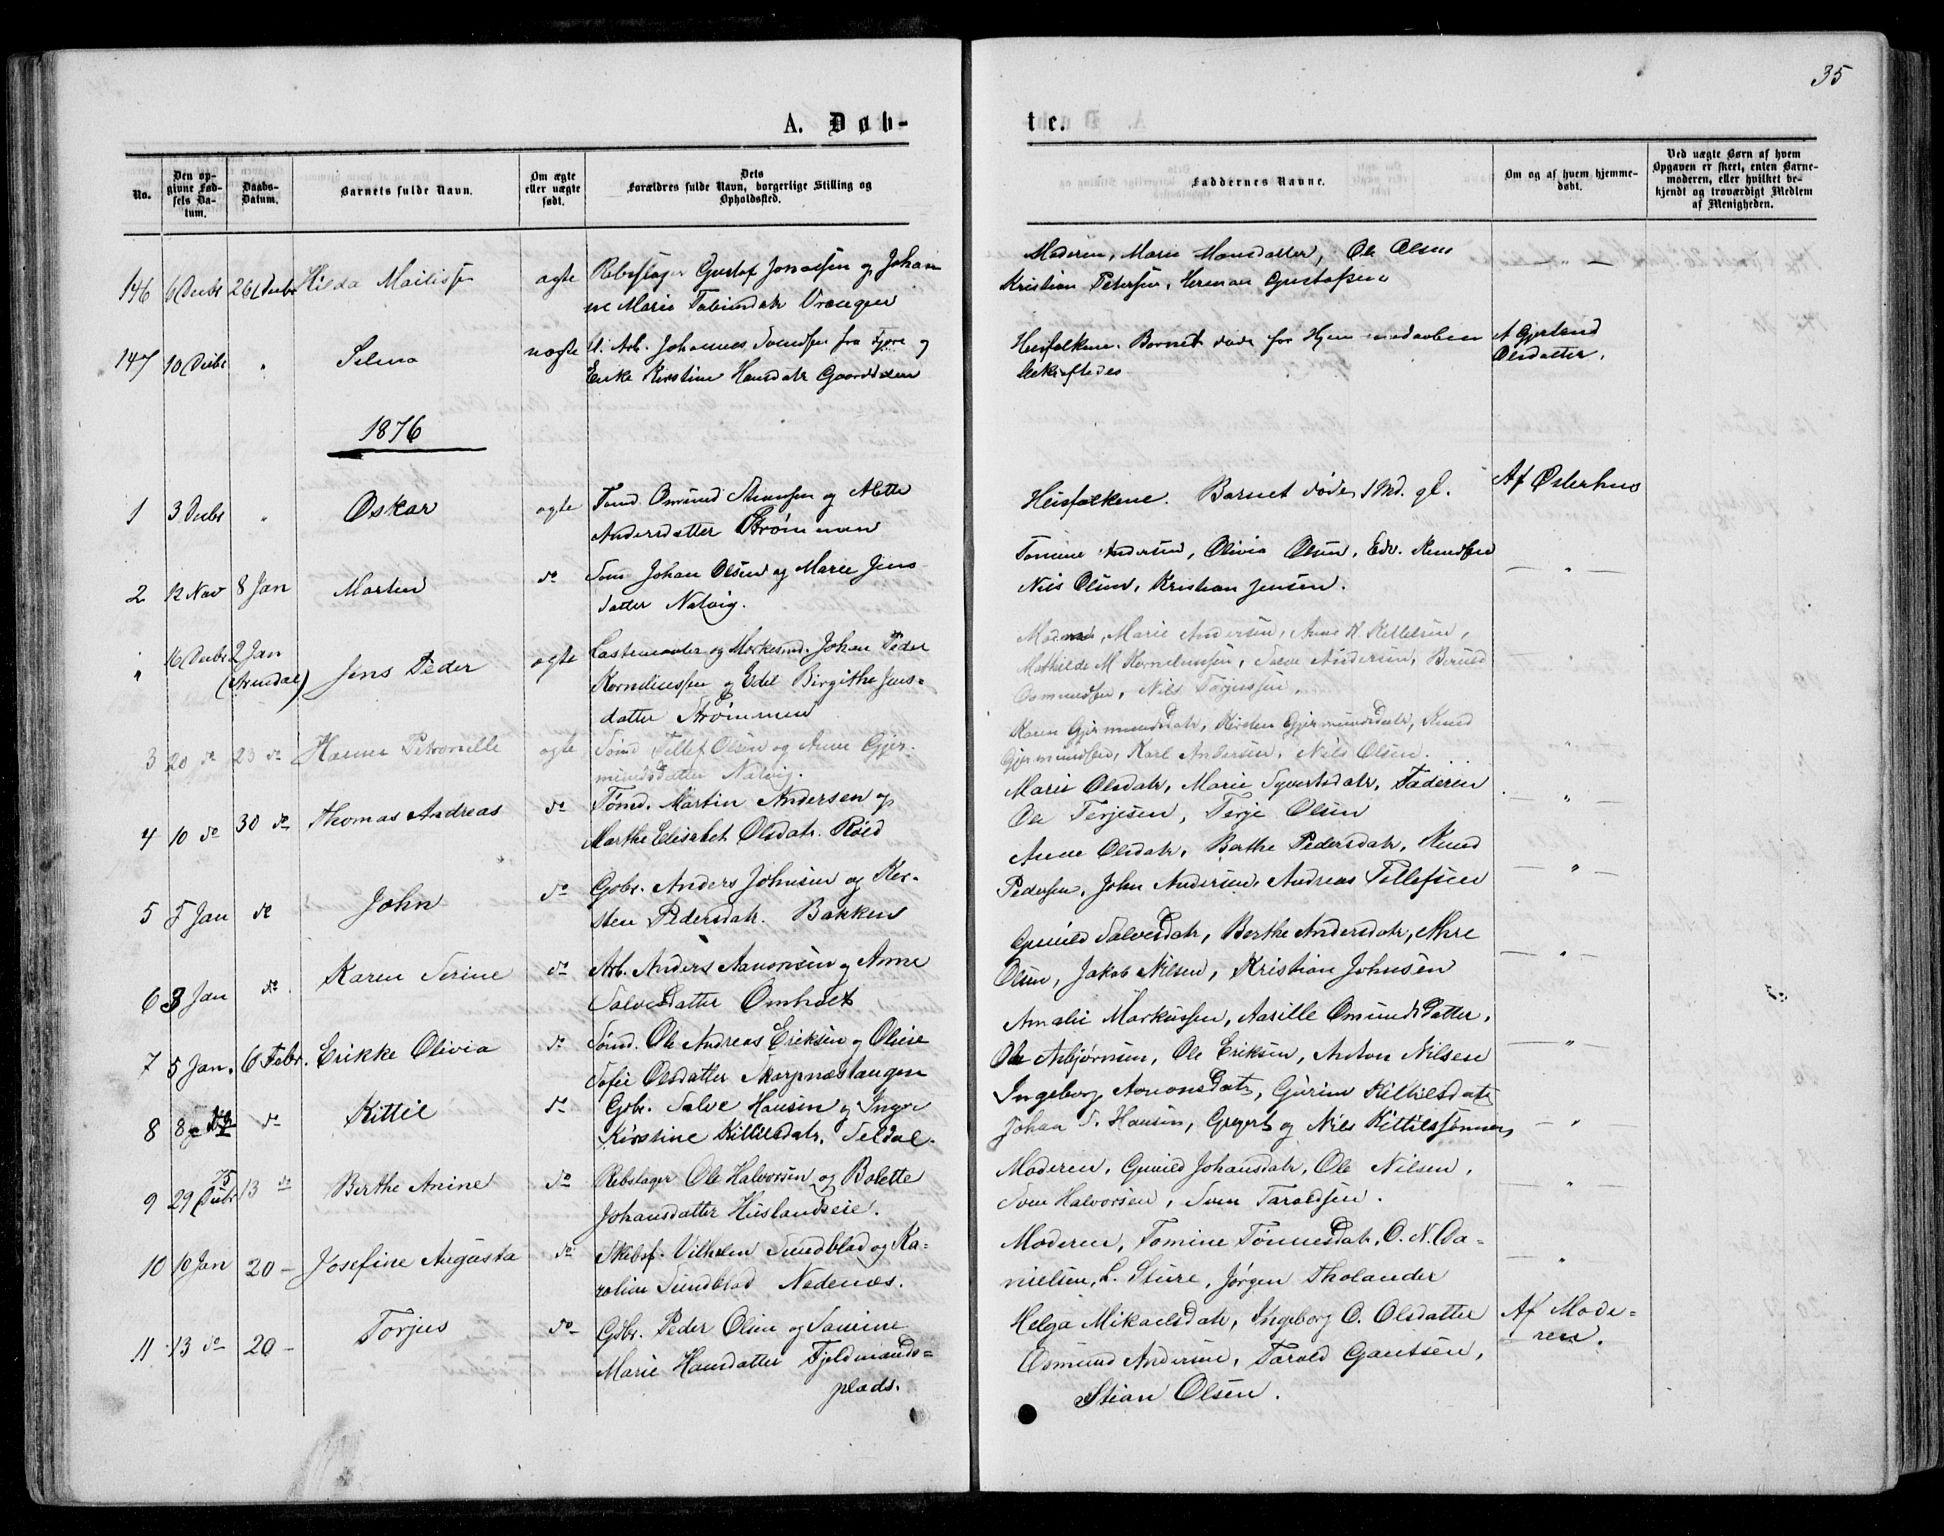 35
A. Døb-
te.
No.
Den opgivne Fødsels Datum.
Daabs-Datum.
Barnets fulde Navn.
Om ægte eller uægte født.
Dets Forældres fulde Navn, borgerlige Stilling og Opholdssted.
Faddernes Navne.
Om og af hvem hjemmedøbt.
Ved uægte Børn af hvem Opgaven er skeet, enten Barnemoderen, eller hvilket bekjendt og troværdigt Medlem af Menigheden.
146 6 Decbr 26 Decbr Hilda ægte Rebslager Gustaf Jonassen og Johan
ne Marie Vrængen
Moderen, Marie Monsdatter, Ole Olsen
Kristian Petersen, Herman Gustafsen
— " —
147 10 Decbr " Selma uægte U. Arb. Johannes Svendsen fra Fjære og
Enke Kirstine Hansdatr
Heisfolkene. Barnet døde før Hjemmedaaben
bekræftedes
Olsdatter.
1876
1 3 Decbr " Oskar ægte Tømd. Omund og Mette
Andersdatter Strømmen
Heisfolkene. Barnet døde, 1 Md. gl.
Af Østerhus
2 12 Nov 8 Jan Martin do Tømd Johan Olsen og Marie Jens
datter Natvig.
Tomine Andersen, Olivia Olsen, Edv. Knudsen
Nils Olsen, Kristian Jensen.
— " —
" 16 Decbr 2 Jan (Arendal) Jens Peder ægte og Johan Peder
Korneliussen og Edel Birgithe Jens-
datter Strømmen
Marie Andersen, Anne K. Kittelsen,
Mathilde M Korneliussen, Salve Andersen, Beruld
Osmundsen, Nils Torjussen.
3 20 do 23 do Hanne Petronelle ægte Tømd Tellef Olsen og Anne Gjer-
mundsdatter Natvig.
Karen Gjermundsdatr, Kirsten Gjermundsdatr, Knud
Gjermundsen, Karl Andersen, Nils Olsen.
4 10 do 30 do Thomas Andreas do Tømd. Martin Andersen og
Marthe Elisabet Olsdatr. Røed
Marie Olsdatr, Marie Syvertsdatr, Faderen
Ole Terjesen, Terje Olsen
— " —
5 5 Jan do John do Gbr. Anders Johnsen og Ker-
sten Pedersdatr. Bakken
Anne Olsdatr, Berthe Pedersdatr, Knud
Pedersen, John Andersen, Andreas Tellefsen
— " —
6 3 Jan do Karen Serine do Arb. Anders Aanonsen og Anne
Salvesdatter Omholt
Gunild Salvesdatr, Berthe Andersdatr, Are
Olsen, Jakob Nilsen, Kristian Johnsen
— " —
7 5 Jan. 6 Febr. Erikke Olivia do Tømd. Ole Andreas Eriksen og Olene
Sofie Olsdatter Skarpnæstangen
Amalie Markussen, Aasille OmundsDatter,
Ole Asbjørnsen, Ole Eriksen, Anton Nilsen
— " —
8 8 do Kittil do Gbr. Salve Hansen og Inger
Kirstine Kittilsdatr. Seldal.
Ingeborg AanonsDatr, Gurine Kittilsdatr
Johan S. Hansen, Gregert og Nils Kittilssønner,
— " —
9 29 Decbr 75 13 do Berthe Anine do Rebslager Ole Halvorsen og Bolette
Johansdatter Huslandseie.
Moderen, Gunild Johansdatr, Ole Nilsen,
Sven Halvorsen, Sven Taraldsen.
— " —
10 10 Jan 20 — Josefine Augusta do Skibsf. Vilhelm Sundblad og Ka-
roline Sundblad Nedenæs.
Moderen, Tomine TønnesDatr, O. N. Da-
nielsen, L. Sture, Jørgen Tholander
— " —
11 13 do 20 — Torjus do Gbr. Peder Olsen og Samine
Marie Hansdatter Fjeldmands=
plads.
Helga Mikaelsdatr, Ingeborg O. Olsdatter
Osmund Andersen, Tarald Gautsen,
Stian Olsen.
Af Mode=
ren.